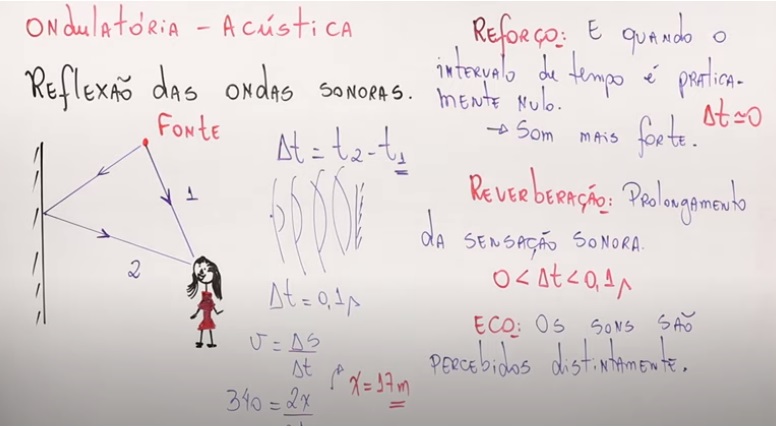 ONDULATÓRIA - ACÚSTICA
REFLEXÃO DAS ONDAS SONORAS.
FONTE
1
2
Δt = t₂ - t₁
Δt = 0,1s
v = ΔS
Δt
340 = 2x
x = 17m
REFORÇO: E QUANDO O
INTERVALO de tempo é PRATICA-
MENTE NULO.
Δt ≃ 0
→ Som mais forte.
REVERBERAÇÃO: PROLONGAMENTO
DA SENSAÇÃO SONORA.
0 < Δt < 0,1s
ECO: OS SONS SÃO
PERCEBIDOS DISTINTAMENTE.